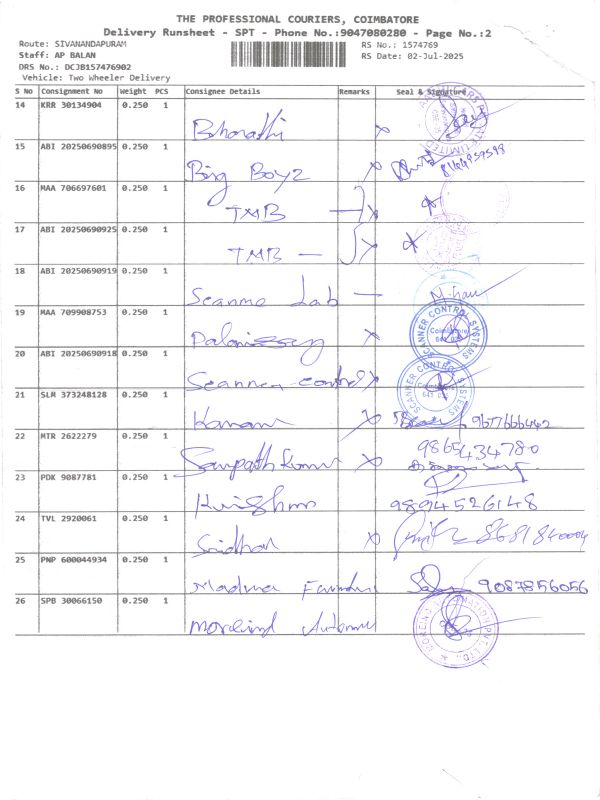 THE PROFESSIONAL COURIERS, COIMBATORE
Delivery Runsheet - SPT - Phone No.:9047080280 - Page No.:2
Route: SIVANANDAPURAM
RS No.: 1574769
Staff: AP BALAN
RS Date: 02-Jul-2025
DRS No.: DCJB157476902
Vehicle: Two Wheeler Delivery
S No Consignment No Weight PCS Consignee Details Remarks Seal & Signature
14 KRR 30134904 0.250 1
Bharathi x
15 ABI 20250690895 0.250 1
Big Boyz x
16 MAA 706697601 0.250 1
TMB x
17 ABI 20250690925 0.250 1
TMB x
18 ABI 20250690919 0.250 1
Scanme Lab
19 MAA 709908753 0.250 1
x
SCANNER CONTROL SYSTEMS
Coimbatore
20 ABI 20250690918 0.250 1
Scanner control x
SCANNER CONTROL SYSTEMS
21 SLM 373248128 0.250 1
x 9677666442
22 MTR 2622279 0.250 1
Sampath Kumar x 9865434780
23 PDK 9087781 0.250 1
9894526148
24 TVL 2920061 0.250 1
Sridhar x 8681840004
25 PNP 600044934 0.250 1
9087856056
26 SPB 30066150 0.250 1